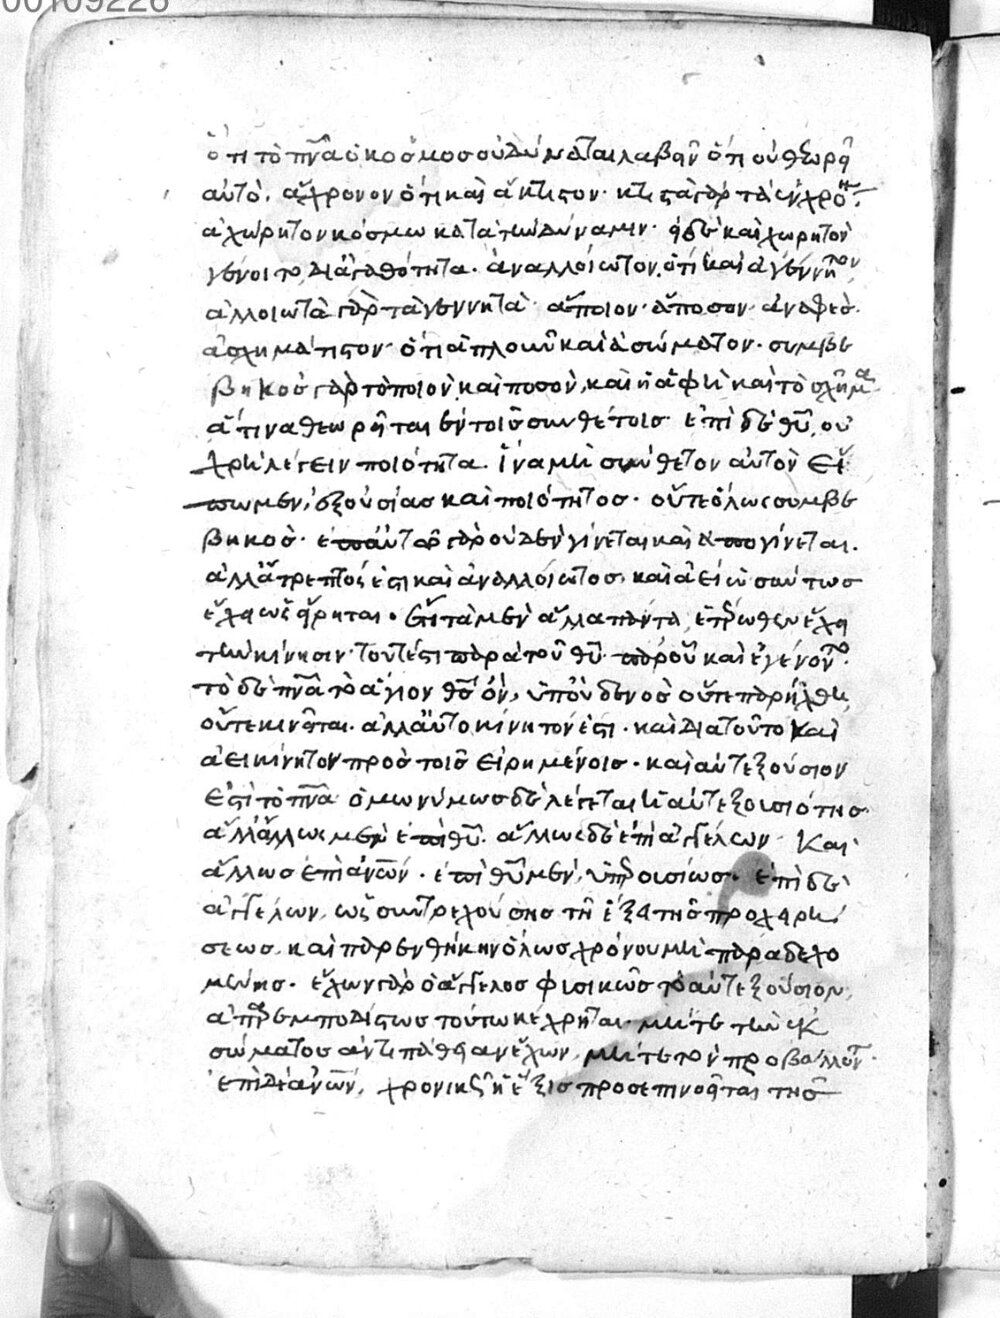 00109226
ὅτι τὸ πνᾶ ὁ κόσμος οὐ δύναται λαβεῖν ὅτι οὐ θεωρεῖ
αὐτό. ἄχρονον ὅτι καὶ ἄκτιστον. κτιστὰ γὰρ τὰ ἐν χρόν.
ἀχώρητον κόσμω κατὰ τὴν δύναμιν. ἠδὲ καὶ χωρητὸν
γένοιτο, δι ἀγαθότητα. ἀναλλοίωτον, ὅτι καὶ ἀγέννητον
ἀλλοιωτὰ γὰρ τὰ γεννητὰ. ἄποιον. ἄποσον. ἀναφὲσ.
ἀσχημάτιστον. ὅτι ἁπλοῦν καὶ ἀσώματον. συμβε
βηκὸσ γὰρ τὸ ποιὸν, καὶ ποσὸν, καὶ ἡ ἀφὴ καὶ τὸ σχῆμα
ἅτινα θεωρεῖται ἐν τοῖσ συνθέτοισ. ἐπὶ δὲ θῦ, οὐ
χρὴ λέγειν ποιότητα. ἵνα μὴ σύνθετον αὐτὸν εἴ
πωμεν, ἐξ οὐσίασ καὶ ποιότητοσ. οὔτε ὅλως συμβε
βηκὸσ. ἐπ αὐτῶ γὰρ οὐδὲν γίνεται καὶ ἀπογίνεται.
ἀλλ ἄτρεπτός ἐστι καὶ ἀναλλοίωτοσ, καὶ ἀεὶ ὡσαύτωσ
ἔχει ὡς εἴρηται. εἶτα μὲν ἄλλα πάντα, ἑτέρωθεν ἔχει
τὴν κίνησιν. τουτέστι παρὰ τοῦ θῦ. παρ οὗ καὶ ἐγένοντο.
τὸ δὲ πνᾶ τὸ ἅγιον θσ ὂν, ὑπ οὐδενοσ οὔτε παρήχθη,
οὔτε κινεῖται. ἀλλ αὐτοκίνητόν ἐστι. καὶ διὰ τοῦτο καὶ
ἀεικίνητον πρὸσ τοῖσ εἰρημένοισ. καὶ αὐτεξούσιον
ἐστὶ τὸ πνᾶ. ὁμωνύμωσ δὲ λέγεται ἡ αὐτεξουσιότησ.
ἄλλ ἄλλως μὲν ἐπὶ θῦ. ἄλλως δὲ ἐπὶ ἀγγέλων. Καὶ
ἄλλωσ ἐπὶ ἀνῶν. ἐπὶ θῦ μὲν, ὑπερουσίωσ. ἐπὶ δὲ
ἀγγέλων, ὡς συντρεχούσησ τῆ ἕξει τῆσ προχειρί
σεωσ. καὶ παρενθήκην ὅλωσ χρόνου μὴ παραδεχο
μένησ. ἔχων γὰρ ὁ ἄγγελοσ φυσικῶσ τὸ αὐτεξούσιον,
ἀπαρεμποδίστωσ τούτω κέχρηται. μήτε τὴν ἐκ
σώματοσ ἀντιπάθειαν ἔχων, μήτε τὸν προσβάλλοντ.
ἐπὶ δὲ ἀνῶν, χρονικῶς ἡ ἕξισ προσεπινοεῖται τῆσ